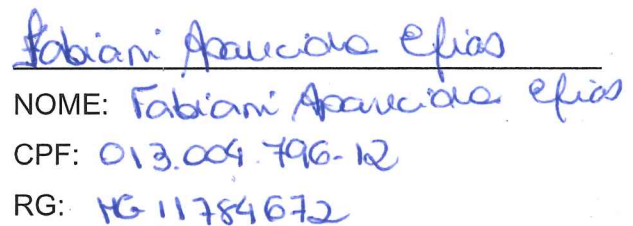 Fabiani Aparecida Efias
NOME: Fabiani Aparecida Efias
CPF: 013.004.796-12
RG: MG 11784672